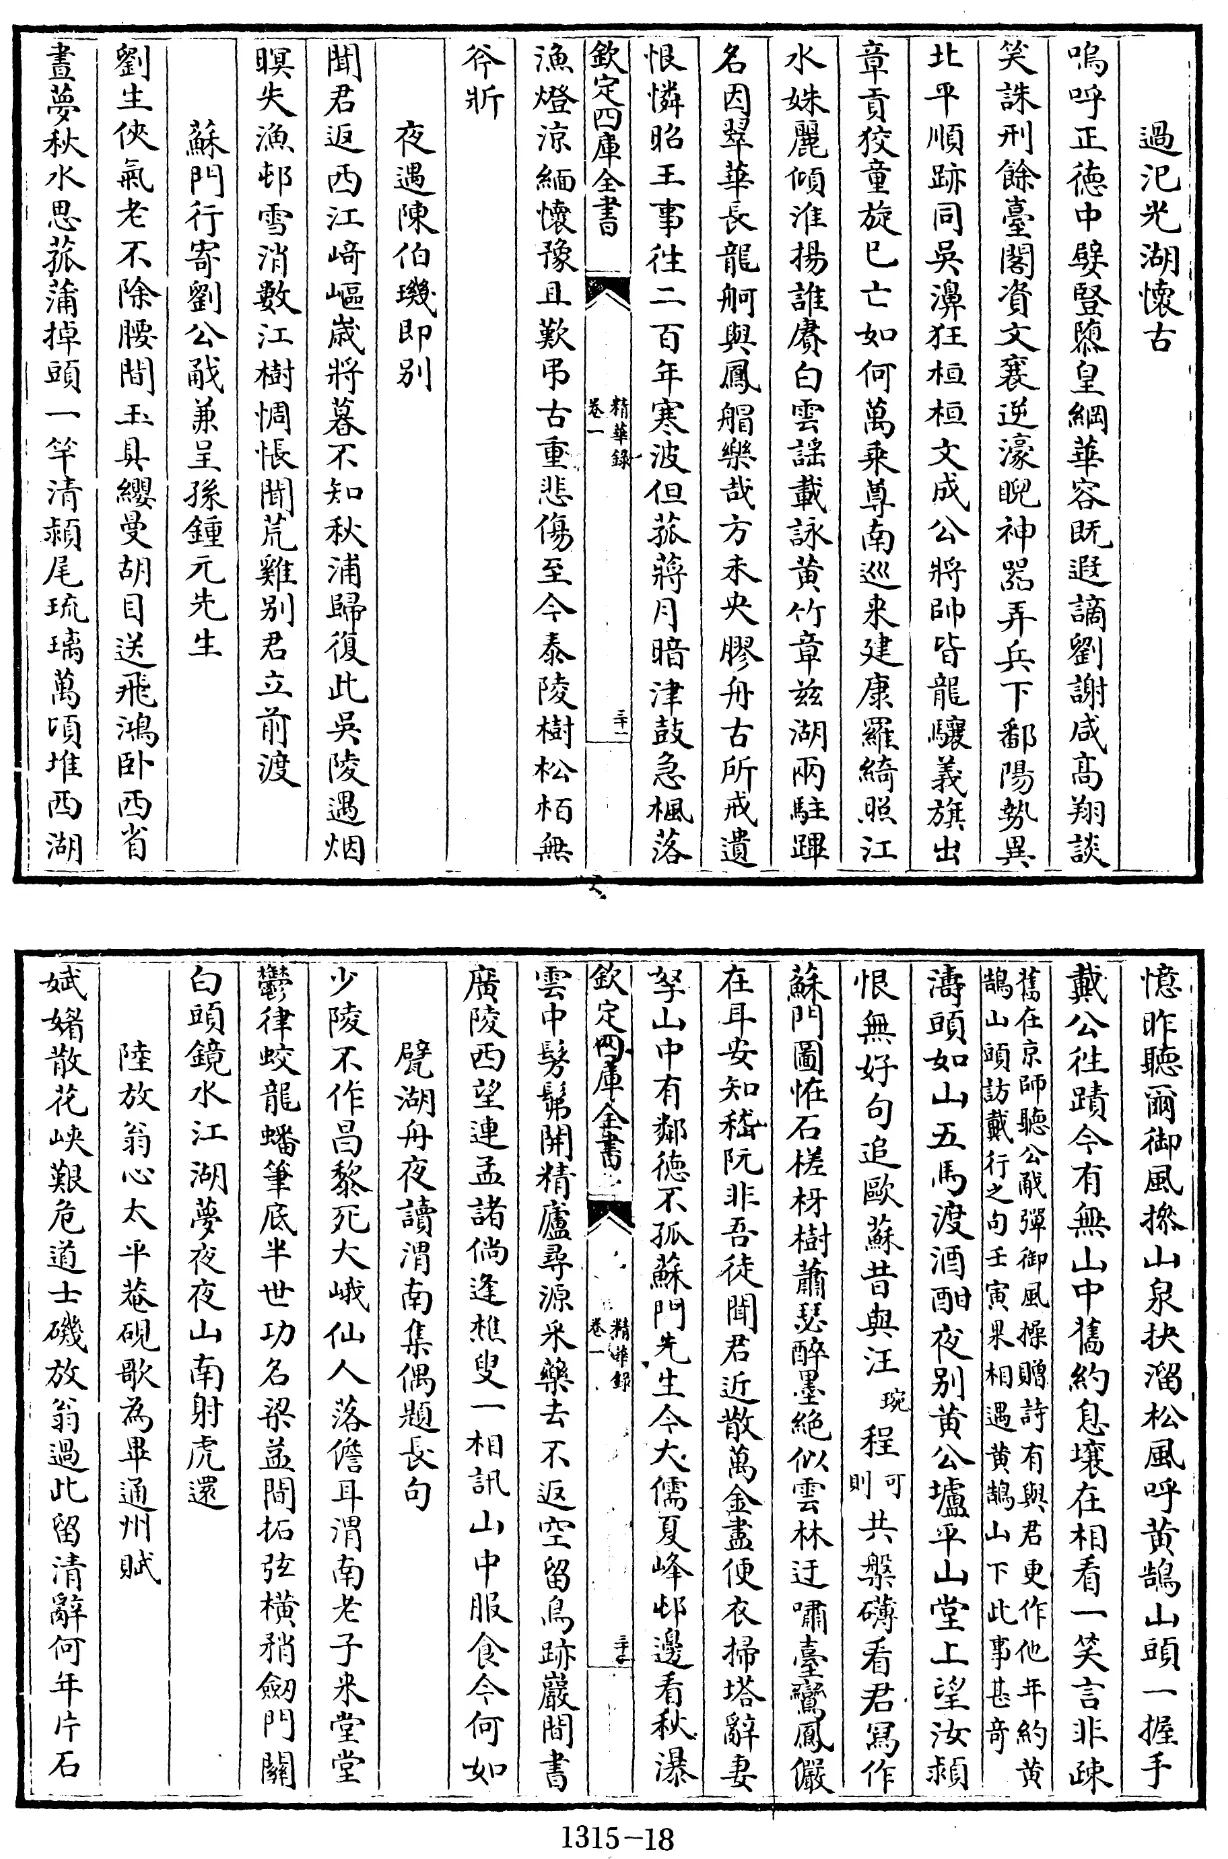 過氾光湖懷古
嗚呼正德中嬖豎隳皇綱華容既遐謫劉謝咸高翔談
笑誅刑餘臺閣資文襄逆濠睨神器弄兵下鄱陽勢異
北平順跡同吳濞狂桓桓文成公將帥皆龍驤義旗出
章貢狡童旋已亡如何萬乘尊南巡來建康羅綺照江
水姝麗傾淮揚誰賡白雲謡載詠黃竹章兹湖兩駐蹕
名因翠華長龍舸與鳳艒樂哉方未央膠舟古所戒遺
恨憐昭王事往二百年寒波但菰蔣月暗津鼓急楓落
欽定四庫全書
精華錄
卷一
三十一
漁燈涼緬懷豫且歎弔古重悲傷至今泰陵樹松栢無
斧斨
夜遇陳伯璣即別
聞君返西江﨑嶇歲將暮不知秋浦歸復此吳陵遇烟
暝失漁邨雪消數江樹惆悵聞荒雞别君立前渡
蘇門行寄劉公㦷兼呈孫鍾元先生
劉生俠氣老不除腰間玉具纓曼胡目送飛鴻卧西省
晝夢秋水思菰蒲掉頭一竿清潁尾琉璃萬頃堆西湖
憶昨聽爾御風摻山泉抉溜松風呼黃鵠山頭一握手
戴公往蹟今有無山中舊約息壤在相看一笑言非疎
舊在京師聽公㦷彈御風操贈詩有與君更作他年約黃
鵠山頭訪戴行之句壬寅果相遇黃鵠山下此事甚奇
濤頭如山五馬渡酒酣夜别黃公壚平山堂上望汝潁
恨無好句追歐蘇昔與汪琬程可則共槃礴看君寫作
蘇門圖怪石槎枒樹蕭瑟醉墨絶似雲林迂嘯臺鸞鳳儼
在耳安知嵇阮非吾徒聞君近散萬金盡便衣掃塔辭妻
孥山中有鄰德不孤蘇門先生今大儒夏峰邨邊看秋瀑
欽定四庫全書
精華錄
卷一
三十二
雲中髣髴開精廬尋源采藥去不返空留鳥跡巖間書
廣陵西望連孟諸倘逢樵叟一相訊山中服食今何如
甓湖舟夜讀渭南集偶題長句
少陵不作昌黎死大峨仙人落儋耳渭南老子来堂堂
鬱律蛟龍蟠筆底半世功名梁益間拓弦横矟劒門關
白頭鏡水江湖夢夜夜山南射虎還
陸放翁心太平菴硯歌為畢通州賦
娬媎散花峽艱危道士磯放翁過此留清辭何年片石
1315-18